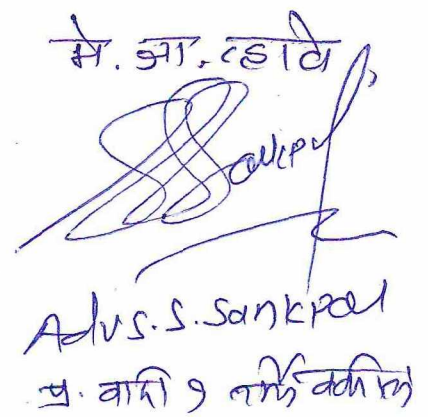 मे. आ. व्हावे
SSankpal
Adv S. S. Sankpal
प्र. वादी १ तर्फे वकील